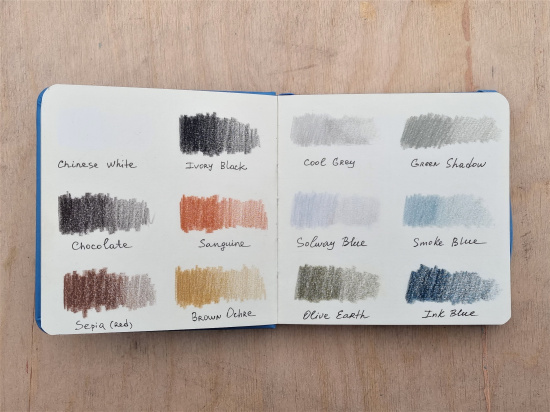 Chinese White
Ivory Black
Cool Grey
Green Shadow
Chocolate
Sanguine
Solway Blue
Smoke Blue
Sepia (Red)
Brown Ochre
Olive Earth
Ink Blue